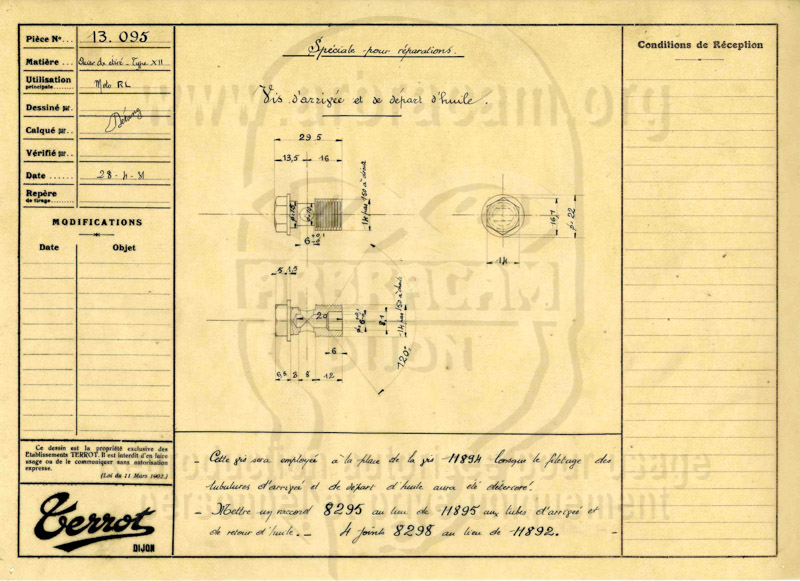 Pièce No... 13.095
Matière.. Acier de cité - Type XII
Utilisation
principale....... Moto RL
Dessiné par..
Calqué par..
Vérifié par..
Date ...... 28-4-31
Repère
de tirage......
MODIFICATIONS
Date Objet
Ce dessin est la propriété exclusive des
Etablissements TERROT. Il est interdit d'en faire
usage ou de le communiquer sans autorisation
expresse.
(Loi du 11 Mars 1902.)
Terrot
DIJON
Spéciale pour réparations.
Vis d'arrivée et de départ d'huile.
29 5
13,5 16
6
14 pas 150 à droite
14
16,1
φ 22
5
20
8,1
14 pas 150 à droite
120°
6
6,5 8 8 12
- Cette vis sera employée à la place de la vis 11894 lorsque le filetage des
tubulures d'arrivée et de départ d'huile aura été détérioré.
- Mettre un raccord 8295 au lieu de 11895 aux tubes d'arrivée et
de retour d'huile. - 4 joints 8298 au lieu de 11892.
Conditions de Réception
ABRACAM
DIJON